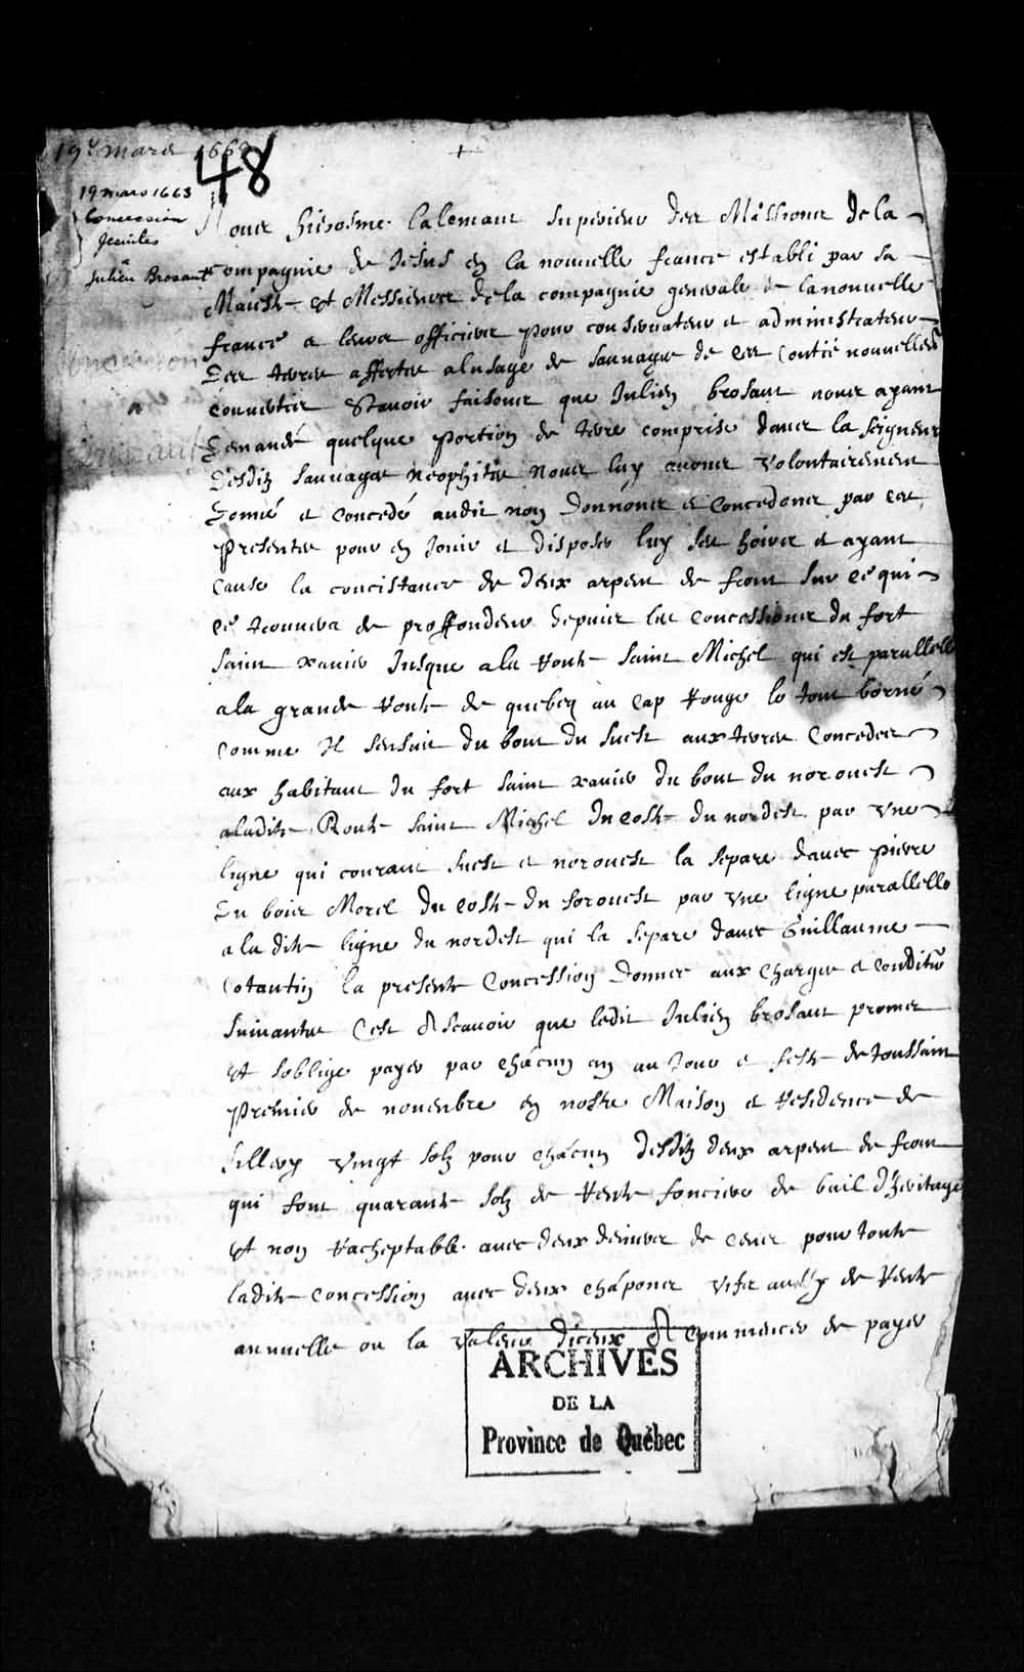 19e mars 1663
48
19 mars 1663
Concession
Jesuites
a
Julien Brosant
Nous hierosme lalemant superieur des Missions de la
Compagnie de Jesus en la nouvelle france establi par sa
Maieste et Messieurs de la compagnie generale de la nouvelle
france et leurs officiers pour conservateur et administrateur
Des terres affectes a lusage de sauvages de ces Contré nouvellem
convertis Scavoir faisons que Julien brosant nous ayant
Demandé quelque portion de terre comprise dans la seigneur
Desditz sauvages neophites Nous luy avons volontairement
Donné et Concedé audit nom Donnons et Concedons par ces
Presentes pour en Jouir et disposer luy ses hoirs et ayant
Cause la concistance de deux arpent de front sur ce qui
ce trouvera de proffondeur depuis les Concessions du fort
saint xavier Jusque a la Route saint Michel qui est parallelle
a la grande Route de quebeq au Cap Rouge le tout borné
Comme Il sensuit du bout du suest aux terres Concedees
aux habitans du fort saint xavier du bout du norouest
a ladite Route saint Michel Du coste du nordest par Vne
ligne qui courant suest et norouest la separe davec pierre
Du bois Morel Du coste du sorouest par vne ligne parallelle
a la dite ligne du nordest qui la separe davec Guillaume
Cotantin la presente Concession Donnee aux Charges et Conditio
suivantes Cest A scavoir que ledit Julien brosant promet
et soblige payer par chacun an au Jour et feste de toussaint
Premier de novenbre en nostre Maison et Residence de
sillery vingt solz pour chacun desditz deux arpent de front
qui font quarante solz de Rente fonciere de bail dheritage
et non Racheptable avec deux deniers de Cens pour toute
ladite concession avec deux chapons vifs aussy de Rente
annuelle ou la valeur diceux A Commencer de payer
ARCHIVES
DE LA
Province de Québec